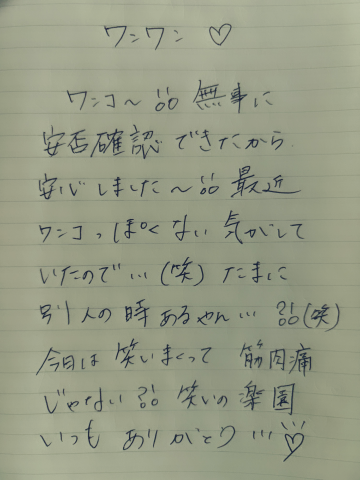 ワンワン ♡
ワンコ〜!!! 無事に
安否確認 できたから
安心しました〜!!! 最近
ワンコっぽくない 気がして
いたので… (笑) たまに
別人の時あるやん… ?!!(笑)
今日は 笑いまくって 筋肉痛
じゃない ?!! 笑いの楽園
いつも ありがとう…♡